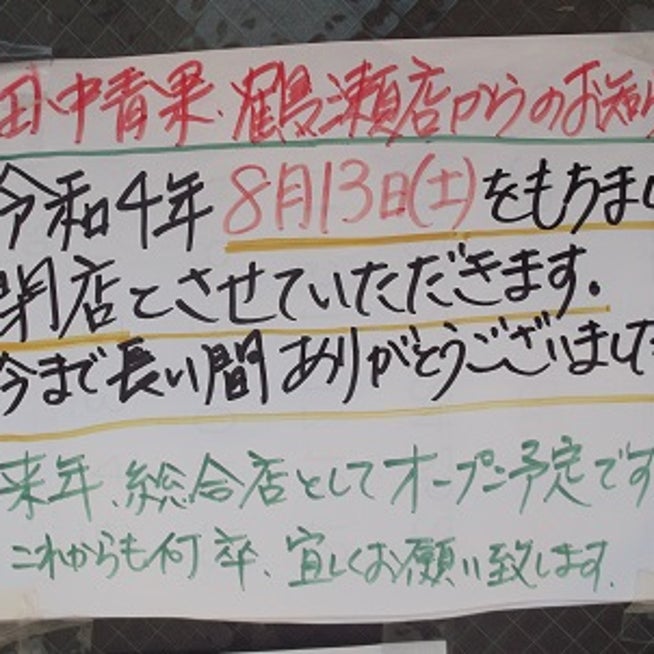 田中青果、鶴瀬店からのお知ら
令和4年8月13日(土)をもちまし
閉店とさせていただきます。
今まで長い間ありがとうございました
来年、総合店としてオープン予定です
これからも何卒、宜しくお願い致します.